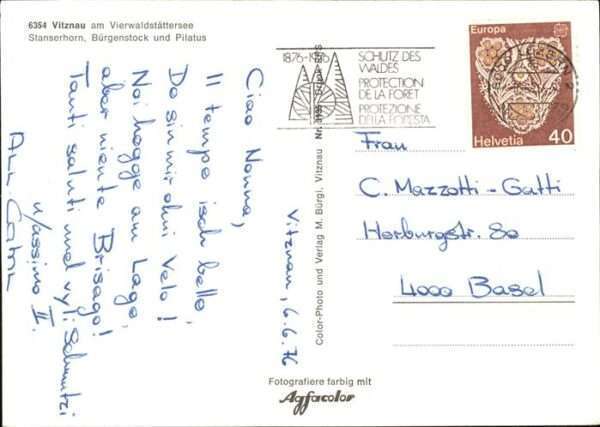 6354 Vitznau am Vierwaldstättersee
Stanserhorn, Bürgenstock und Pilatus
Vitznau, 6.6.76
Ciao Nonna,
Il tempo isch bello
Do sin mir ohni Velo!
Noi hogge am Lago
aber niente Brisago!
Tanti saluti und vyli Schmutzi
Massimo II.
Color-Photo und Verlag M. Bürgi, Vitznau Nr.
Fotografiere farbig mit
Agfacolor
1876-1976
SCHUTZ DES
WALDES
PROTECTION
DE LA FORET
PROTEZIONE
DELLA FORESTA
6000 LUZERN 2
Europa
CEPT
Helvetia 40
Frau
C. Mazzotti-Gatti
Horburgstr. 80
4000 Basel